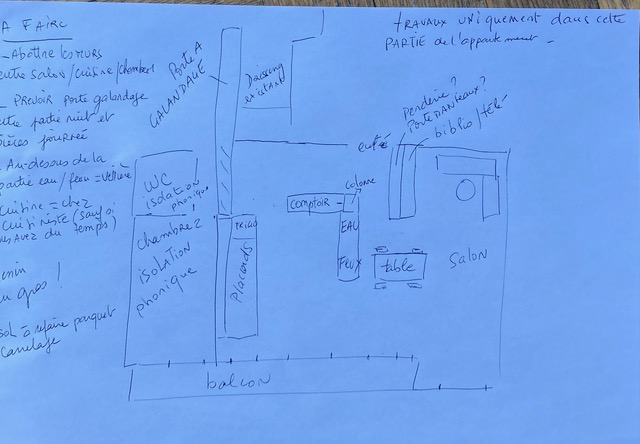 A FAIRE
- Abattre les MURS
entre salon/cuisine/chambre 1
- PREVOIR Porte galandage
entre partie nuit et
pièces journée
- Au-dessus de la
partie eau/feu = verrière
Cuisine = chez
cuisiniste (sauf si
vous avez du temps)
en gros !
sol à refaire parquet
carrelage
TRAVAUX UNIQUEMENT dans cette
PARTIE de l'appartement -
Porte A
GALANDAGE
Dressing
existant
WC
isolation
phonique
chambre 2
isolation
phonique
FRIGO
Placards
entrée
Penderie ?
PORTEMANTEAUX ?
biblio / télé
colonne
comptoir
EAU
FEUX
table
SALON
balcon